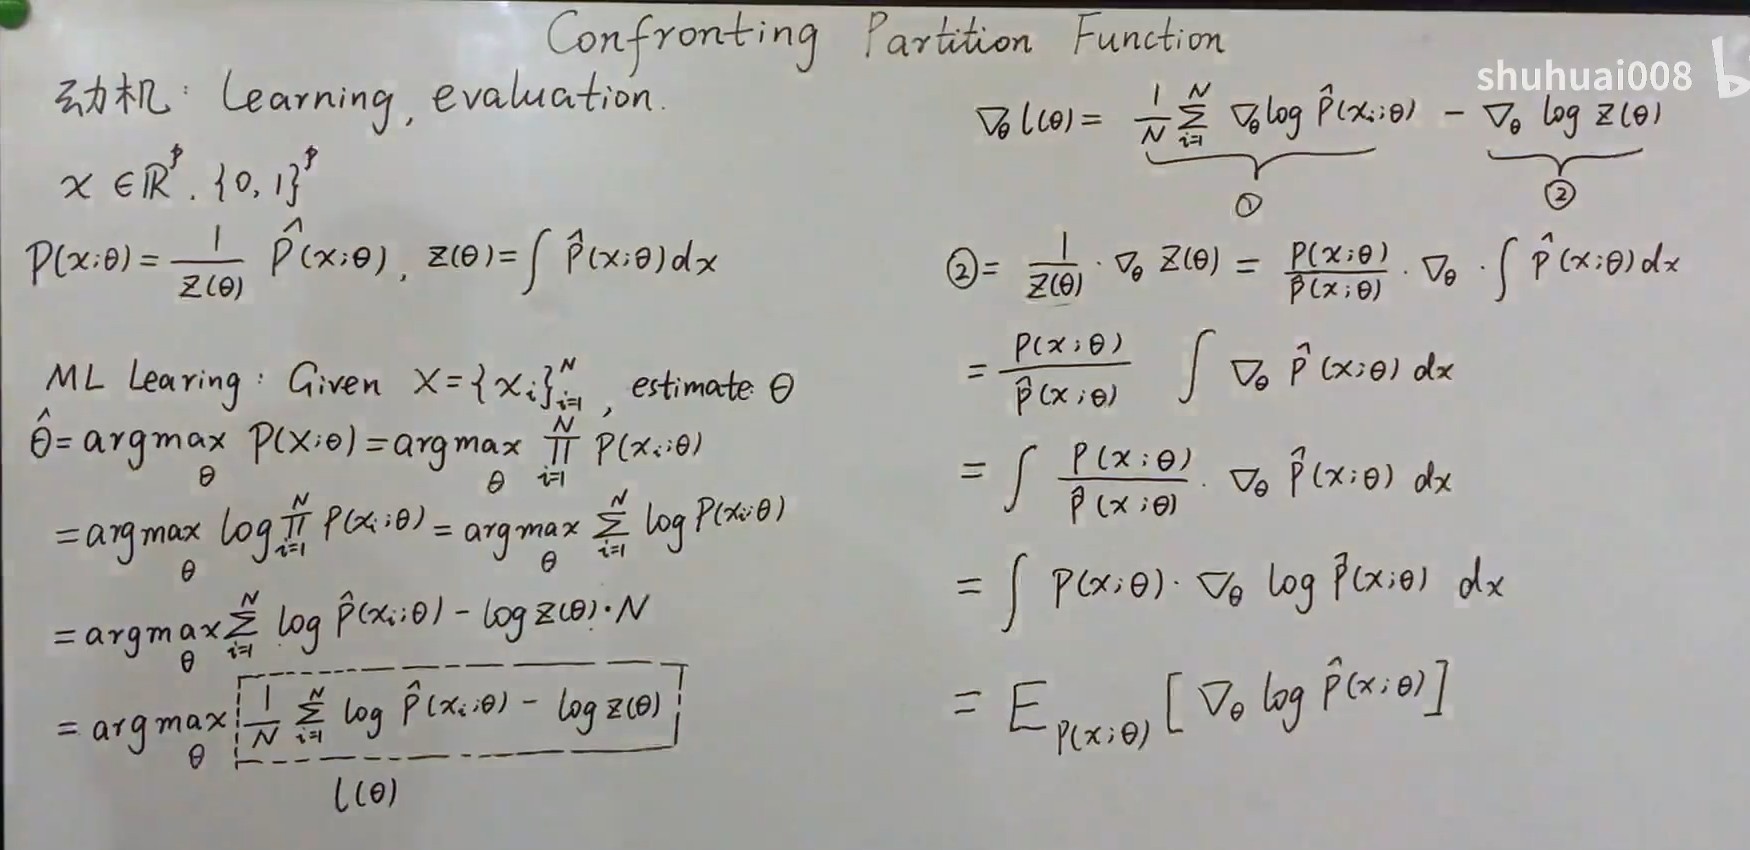 Confronting Partition Function
shuhuai008
动机: Learning, evaluation.
x ∈ ℝ^p, {0, 1}^p
P(x;θ) = 1/Z(θ) P̂(x;θ), Z(θ) = ∫ P̂(x;θ) dx
ML Learing: Given X = {x_i}_{i=1}^N, estimate θ
θ̂ = argmax_θ P(X;θ) = argmax_θ ∏_{i=1}^N P(x_i;θ)
= argmax_θ log ∏_{i=1}^N P(x_i;θ) = argmax_θ ∑_{i=1}^N log P(x_i;θ)
= argmax_θ ∑_{i=1}^N log P̂(x_i;θ) - log Z(θ)·N
= argmax_θ 1/N ∑_{i=1}^N log P̂(x_i;θ) - log Z(θ)
l(θ)
∇_θ l(θ) = 1/N ∑_{i=1}^N ∇_θ log P̂(x_i;θ) - ∇_θ log Z(θ)
① ②
② = 1/Z(θ) · ∇_θ Z(θ) = P(x;θ)/P̂(x;θ) · ∇_θ · ∫ P̂(x;θ) dx
= P(x;θ)/P̂(x;θ) ∫ ∇_θ P̂(x;θ) dx
= ∫ P(x;θ)/P̂(x;θ) · ∇_θ P̂(x;θ) dx
= ∫ P(x;θ) · ∇_θ log P̂(x;θ) dx
= E_{P(x;θ)} [∇_θ log P̂(x;θ)]